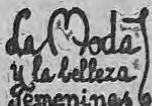 La Moda
y la belleza
femeninas